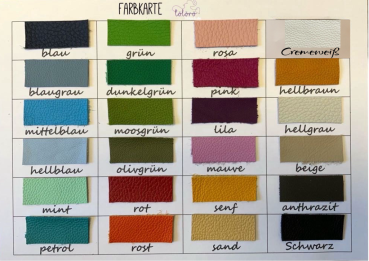 FARBKARTE
blau grün rosa Cremeweiß
blaugrau dunkelgrün pink hellbraun
mittelblau moosgrün lila hellgrau
hellblau olivgrün mauve beige
mint rot senf anthrazit
petrol rost sand Schwarz